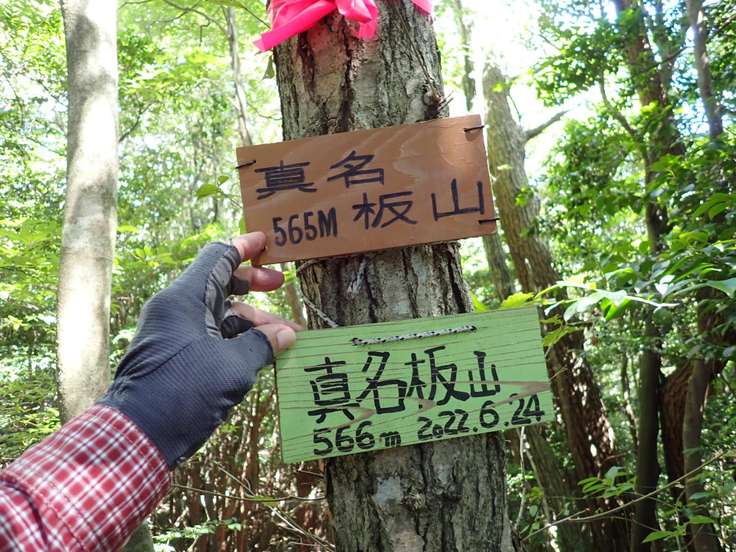 真名
565M 板山
真名板山
566m 2022.6.24